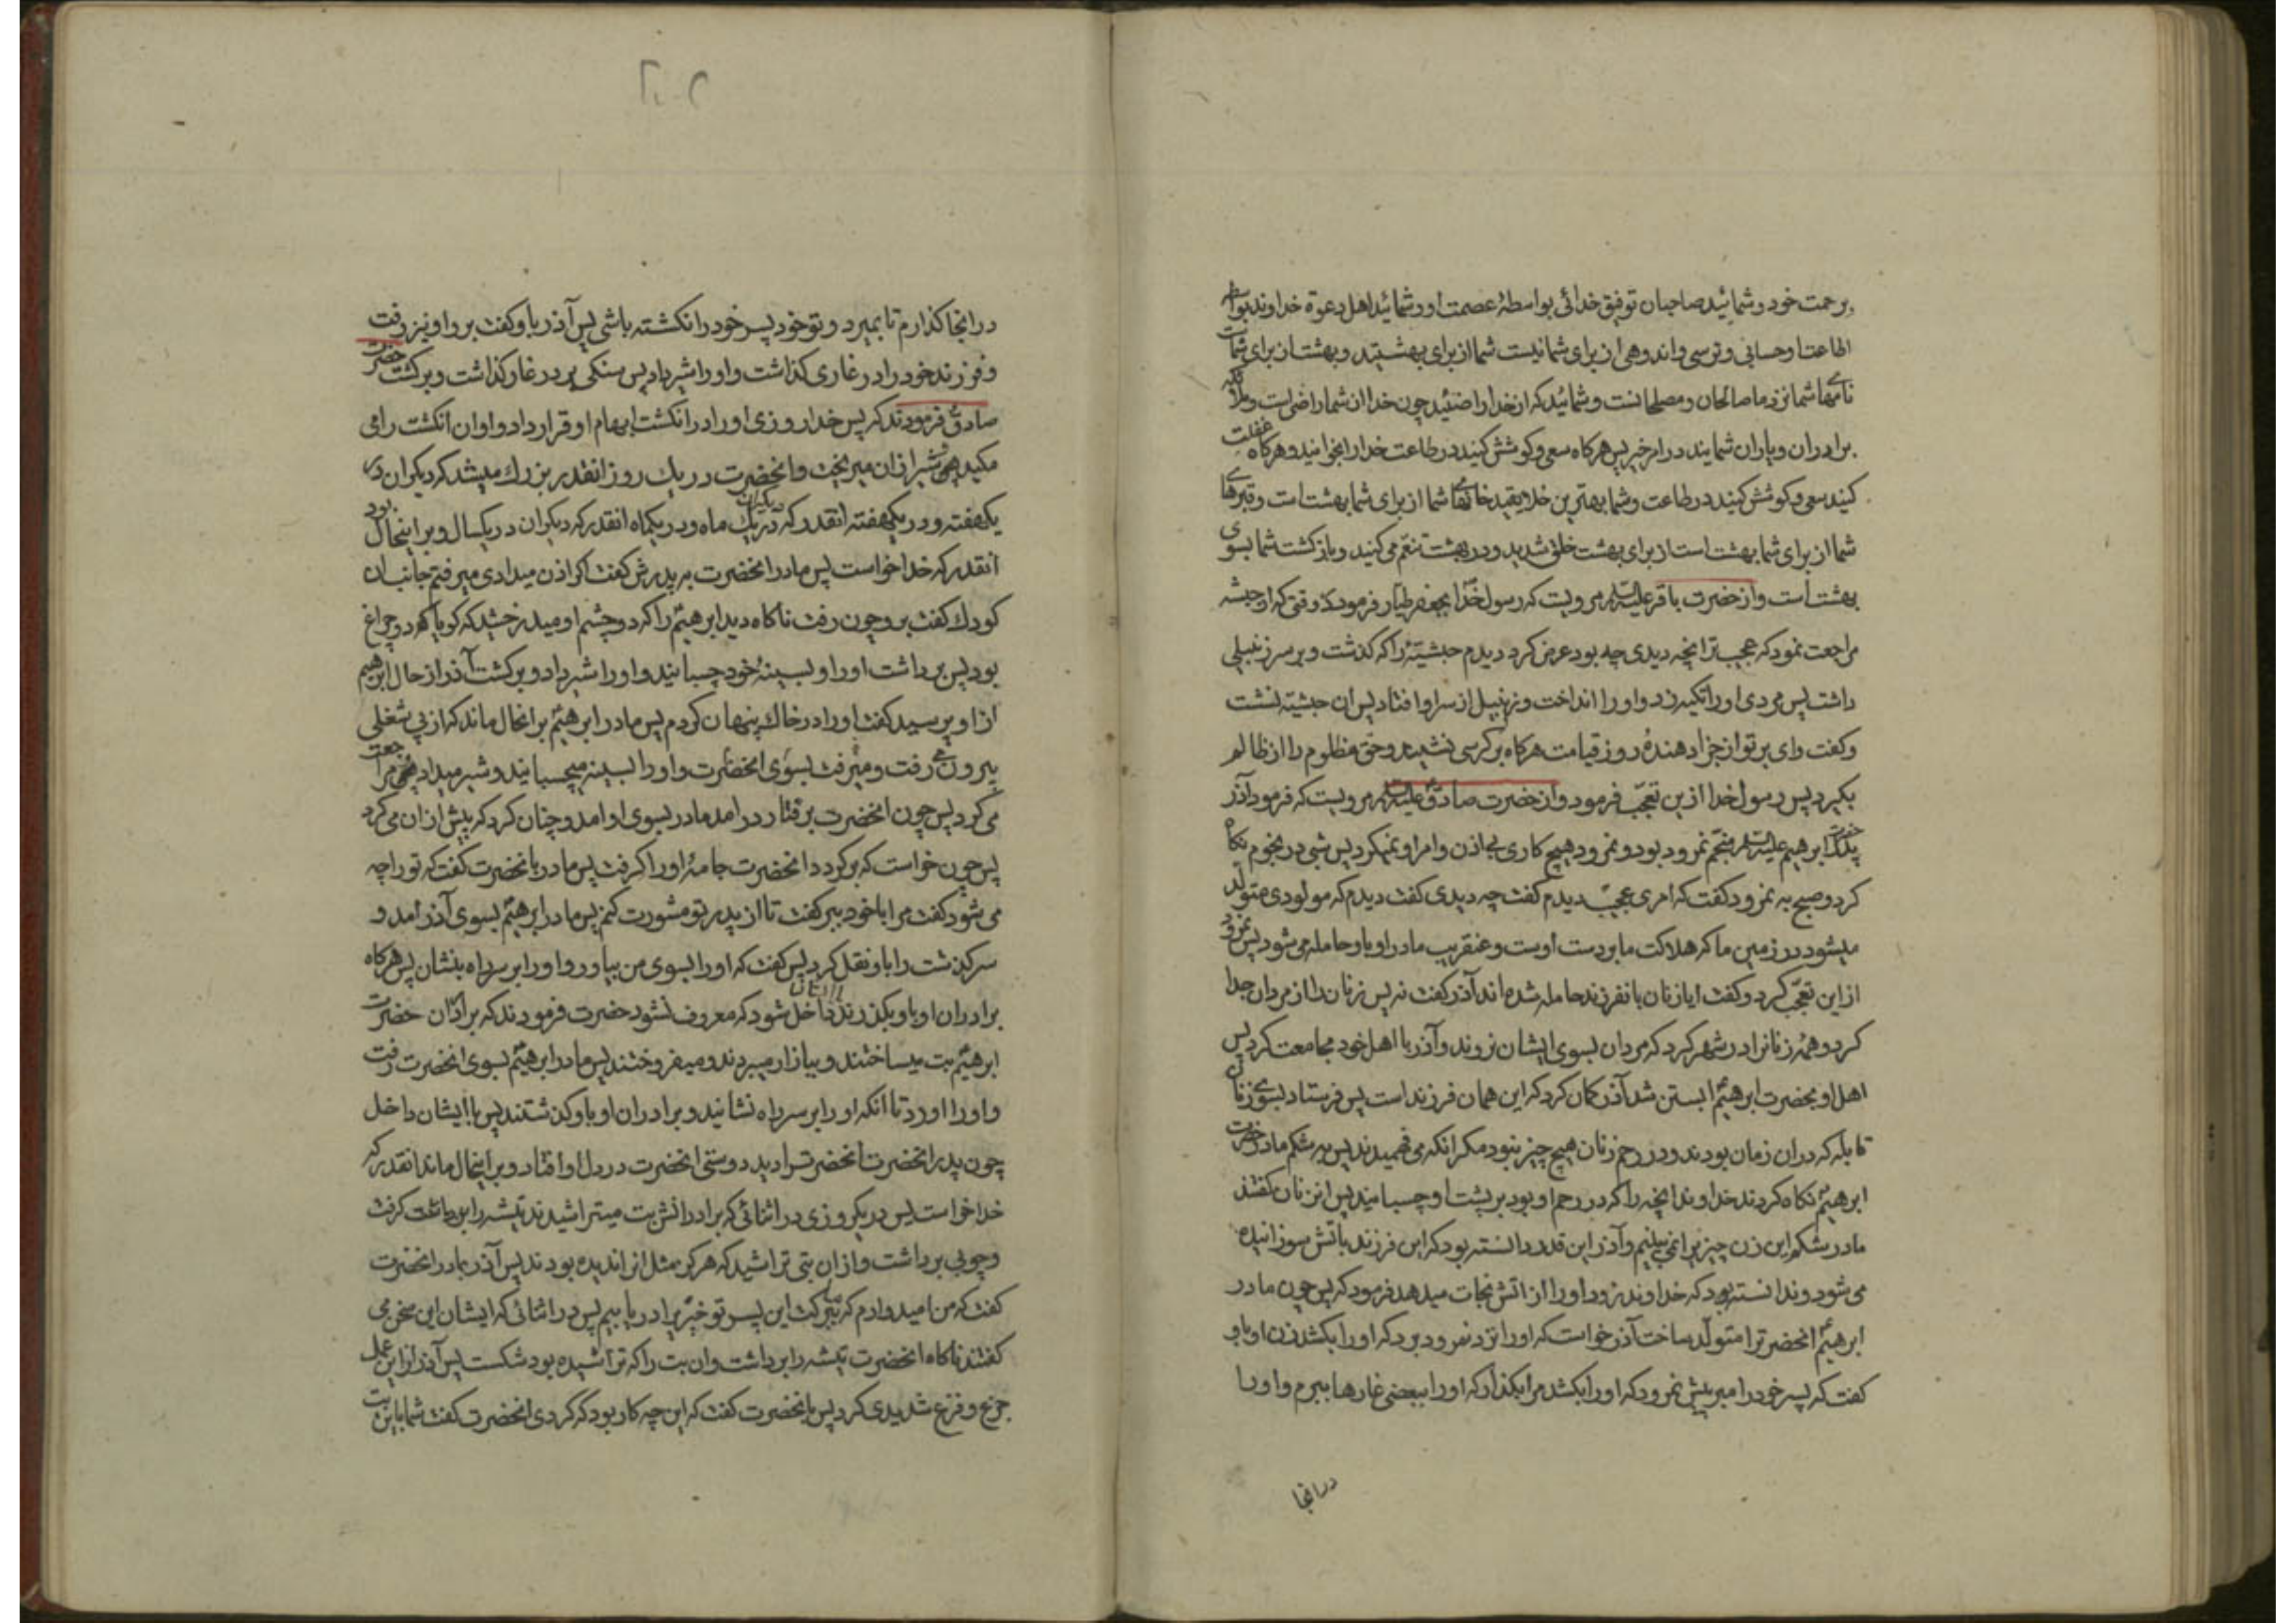 برحمت خود و شمائید صاحبان توفیق خدائی بواسطهٔ عصمت او و شمائید اهل دعوة خداوند بواسطه
اطاعت او حسابی و ترسی و اندوهی از برای شما نیست شما از برای بهشتید و بهشت از برای شماست
نامهای شما نزد ما صالحان و مصلحانست و شمائید که از خدا راضئید چون خدا از شما راضی است و ملائکه
برادران و یاران شمایند در امر خیر پس هرکاه سعی و کوشش کنید در طاعت خدا را بخوانید و هرکاه غفلت
کنید سعی و کوشش کنید در طاعت و شما بهترین خلایقید خانهای شما از برای شما بهشت است و قبرهای
شما از برای شما بهشت است از برای بهشت خلق شدید و در بهشت تنعّم می کنید و بازکشت شما بسوی
بهشت است و از حضرت باقر علیه السلام مرویست که رسول خدا بجعفر طیار فرمود که وقتی که از حبشه
مراجعت نمود که عجیب تر انچه دیدی چه بود عرض کرد دیدم حبشیهٔ را که کذشت و بر سر زنبیلی
داشت پس مردی او را تکیه زد و او را انداخت و زنبیل از سر او افتاد پس ان حبشیه نشست
و کفت وای بر تو از جزا دهندهٔ روز قیامت هرکاه بر کرسی نشیند و حق مظلوم را از ظالم
بکیرد پس رسول خدا ازین تعجّب فرمود و از حضرت صادق علیه السلام مرویست که فرمود آذر
پدر حضرت ابرهیم علیه السلام منجّم نمرود بود و نمرود هیچ کاری بی اذن و امر او نمیکرد پس شبی در نجوم نکاه
کرد و صبح به نمرود کفت که امری عجیب دیدم کفت چه دیدی کفت دیدم که مولودی متولّد
میشود در زمین ما که هلاکت ما بر دست اوست و عنقریب مادر او باو حامله می شود پس نمرود
از این تعجّب کرد و کفت ایا زنان بان فرزند حامله شده اند آذر کفت نه پس زنان را از مردان جدا
کرد و همه زنانرا در شهر کرد که مردان بسوی ایشان نروند و آذر با اهل خود مجامعت کرد پس
اهل او بحضرت ابرهیم ابستن شد آذر کمان کرد که این همان فرزند است پس فرستاد بسوی زنان
قابله که در ان زمان بودند و در رحم زنان هیچ چیز نبود مکر انکه می فهمیدند پس به شکم مادر حضرت
ابرهیم نکاه کردند خداوند انچه را که در رحم او بود بر پشت او چسبانید پس ان زنان کفتند
ما در شکم این زن چیزی را نمی بینیم و آذر این قدر دانسته بود که این فرزند باتش سوزانیده
می شود و ندانسته بود که خداوند زود او را از اتش نجات میدهد فرمود که پس چون مادر
ابرهیم انحضرترا متولّد ساخت آذر خواست که او را نزد نمرود برد که او را بکشد زن او باو
کفت که پسر خود را مبر پیش نمرود که او را بکشد مرا بکذار که او را ببعضی غارها ببرم و او را
درانجا
درانجا کذارم تا بمیرد و تو خود پسر خود را نکشته باشی پس آذر باو کفت برو او نیز رفت
و فرزند خود را در غاری کذاشت و او را شیر داد پس سنکی بر در غار کذاشت و برکشت حضرت
صادق فرمودند که پس خدا روزی او را در انکشت ابهام او قرار داد و او ان انکشت را می
مکید و شیر از ان میریخت و انحضرت در یک روز انقدر بزرک میشد که دیکران در
یکهفته و در یکهفته انقدر که دیکران در یک ماه و در یکماه انقدر که دیکران در یکسال و بر اینحال بود
انقدر که خدا خواست پس مادر انحضرت بپدرش کفت اکر اذن میدادی میرفتم جانب ان
کودک کفت برو چون رفت ناکاه دید ابرهیم را که دو چشم او میدرخشید که کویا که دو چراغ
بود پس برداشت او را و بسینهٔ خود چسبانید و او را شیر داد و برکشت آذر از حال ابرهیم
از او پرسید کفت او را در خاک پنهان کردم پس مادر ابرهیم بر انحال ماند که از پی شغلی
بیرون می رفت و میرفت بسوی انحضرت و او را بسینه میچسبانید و شیر میداد و مراجعت
می کرد پس چون انحضرت برفتار درامد مادر بسوی او امد و چنان کرد که پیش از ان می کرد
پس چون خواست که برکردد انحضرت جامهٔ او را کرفت پس مادر بانحضرت کفت که تو را چه
می شود کفت مرا با خود ببر کفت تا از پدر تو مشورت کنم پس مادر ابرهیم بسوی آذر امد و
سرکذشت را باو نقل کرد پس کفت که او را بسوی من بیاور و او را بر سر راه بنشان پس هرکاه
برادران او باو بکذرند با انها داخل شود که معروف نشود حضرت فرمودند که برادران حضرت
ابرهیم بت میساختند و ببازار میبردند و میفروختند پس مادر ابرهیم بسوی انحضرت رفت
و او را اورد تا انکه او را بر سر راه نشانید و برادران او باو کذشتند پس با ایشان داخل
چون پدر انحضرت انحضرت را دید دوستی انحضرت در دل او افتاد و بر اینحال ماند انقدر که
خدا خواست پس در یکروزی در اثنائی که برادرانش بت میتراشیدند تیشه را کرفت
و چوبی برداشت و از ان بتی تراشید که هرکز مثل انرا ندیده بودند پس آذر بمادر انحضرت
کفت که من امیدوارم که ببرکت این پسر تو خیری را دریابیم پس در اثنائی که ایشان این سخن می
کفتند ناکاه انحضرت تیشه را برداشت و ان بت را که تراشیده بود شکست پس آذر از این عمل
جزع و فزع شدیدی کرد پس بانحضرت کفت که این چه کار بود که کردی انحضرت کفت شما باین بت